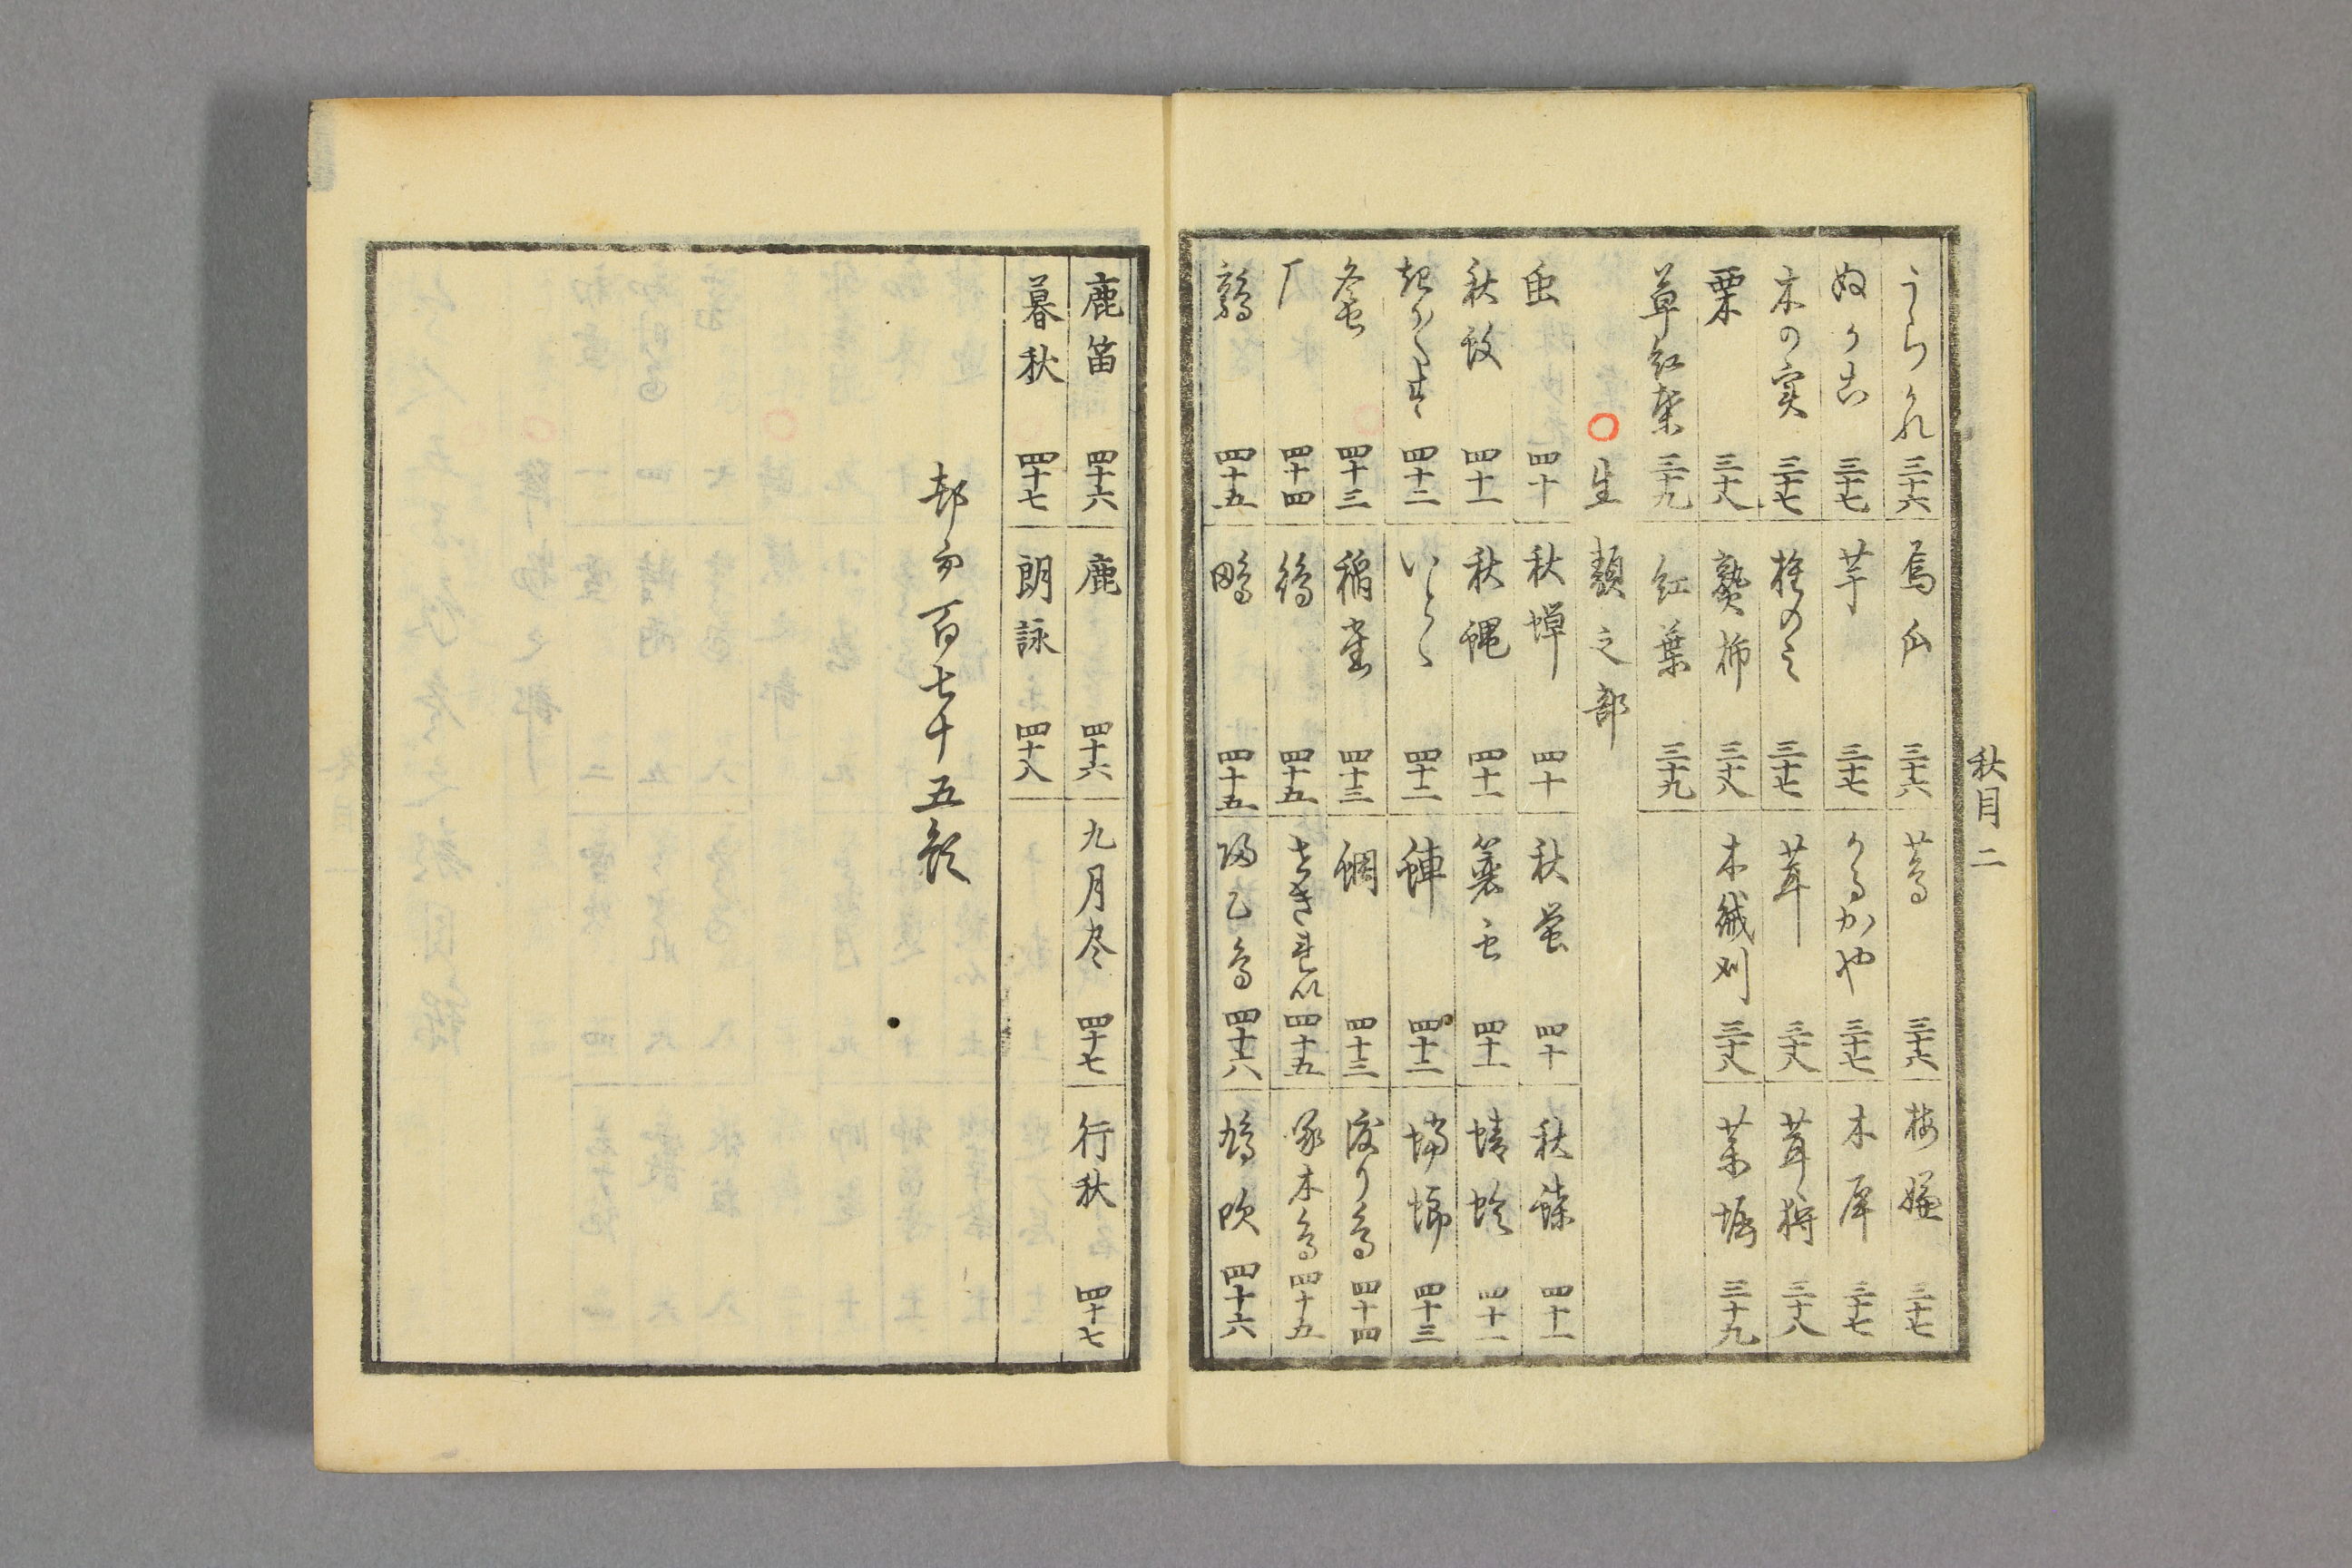 秋目二
うらかれ 三十六 蔦 三十六 梅嫌 三十七
ぬかご 三十七 芋 三十七 かるかや 三十七 木犀 三十七
木の実 三十七 椎のミ 三十七 茸 三十八 茸狩 三十八
栗 三十八 熟柿 三十八 木綿刈 三十八 茶堀 三十九
草紅葉 三十九 紅葉 三十九
○生類之部
虫 四十 秋蝉 四十 秋蛍 四十 秋蝶 四十一
秋蚊 四十一 秋蝿 四十一 簑虫 四十一 蜻蛉 四十一
四十二 いとゝ 四十二 四十二 蟷螂 四十三
蚕 四十三 稲雀 四十三 四十三 渡り鳥 四十四
厂 四十四 四十五 四十五 啄木鳥 四十五
鶉 四十五 鴫 四十五 帰乙鳥 四十六 鳩吹 四十六
鹿笛 四十六 鹿 四十六 九月尽 四十七 行秋 四十七
暮秋 四十七 朗詠 四十八
部面百七十五題